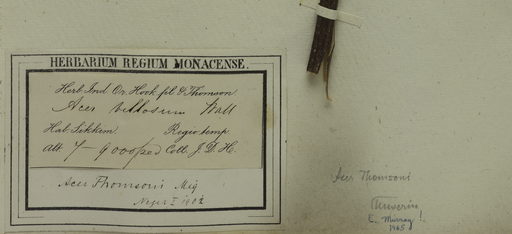 HERBARIUM REGIUM MONACENSE.
Herb. Ind. Or. Hook. fil. & Thomson
Acer villosum Wall
Hab. Sikkim. Regio temp.
alt. 7-9000 ped Coll. J. D. H.
Acer Thomsoni Miq
1902
Acer Thomsoni
E. Murray !
1965